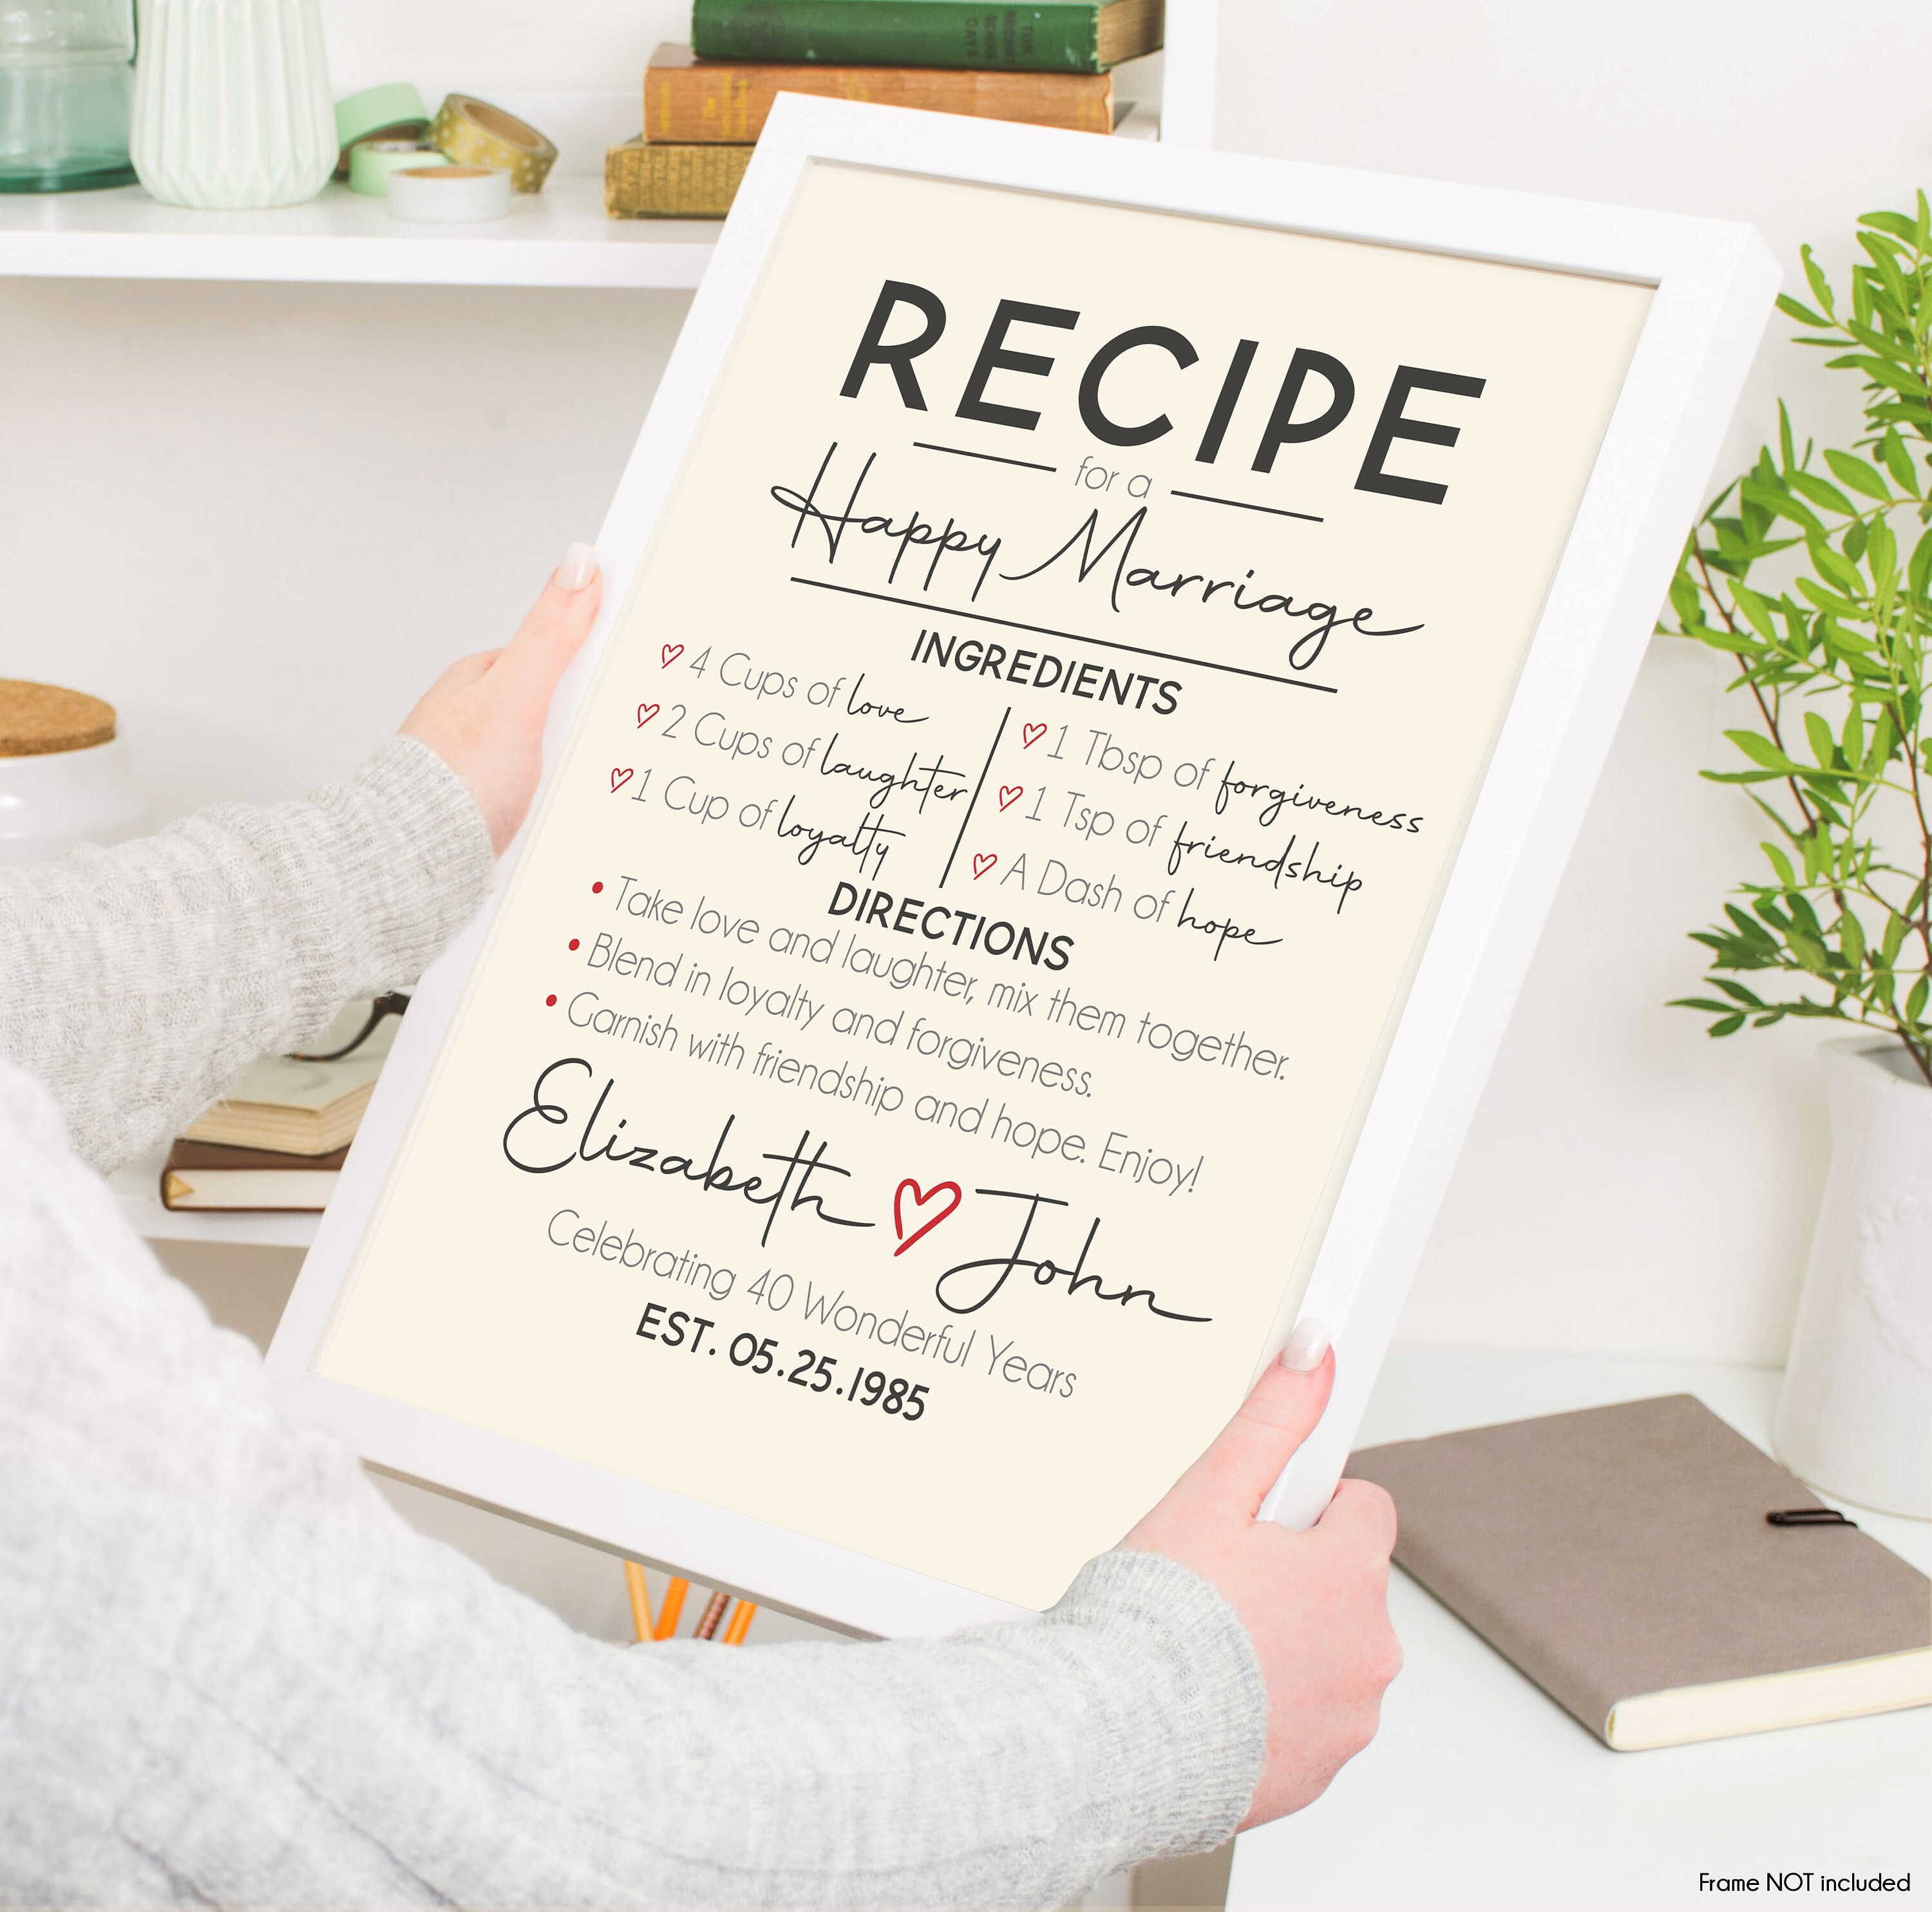 TOM
BROWN'S
SCHOOL
DAYS
RECIPE
for a
Happy Marriage
INGREDIENTS
4 Cups of love
2 Cups of laughter
1 Cup of loyalty
1 Tbsp of forgiveness
1 Tsp of friendship
A Dash of hope
DIRECTIONS
• Take love and laughter, mix them together.
• Blend in loyalty and forgiveness.
• Garnish with friendship and hope. Enjoy!
Elizabeth John
Celebrating 40 Wonderful Years
EST. 05.25.1985
Frame NOT included